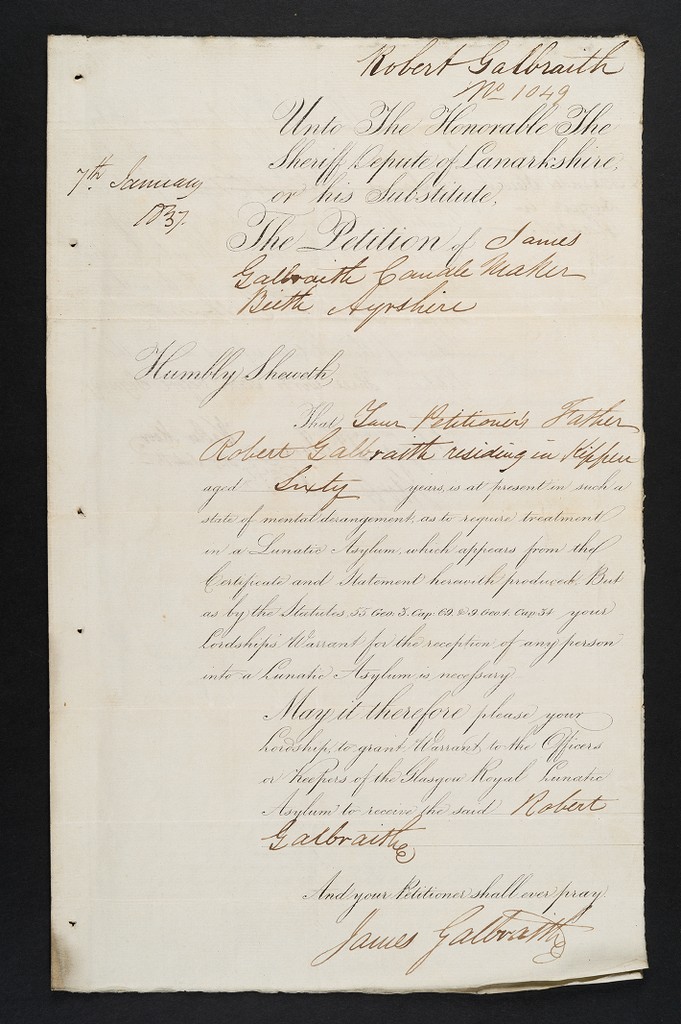 Robert Galbraith
No 1049
Unto The Honorable The
Sheriff Depute of Lanarkshire,
or his Substitute,
7th January
1837.
The Petition of James
Galbraith Candle Maker
Beith Ayrshire
Humbly Sheweth,
That Your Petitioner's Father
Robert Galbraith residing in Kippen
aged Sixty years, is at present in such a
state of mental derangement, as to require treatment
in a Lunatic Asylum, which appears from the
Certificate and Statement herewith produced. But
as by the Statutes, 55 Geo: 3. Cap: 69. & 9. Geo: 4. Cap: 34 your
Lordship's Warrant for the reception of any person
into a Lunatic Asylum is necessary
May it therefore please your
Lordship, to grant Warrant, to the Officers
or Keepers of the Glasgow Royal Lunatic
Asylum to receive the said Robert
Galbraith
And your Petitioner shall ever pray.
James Galbraith